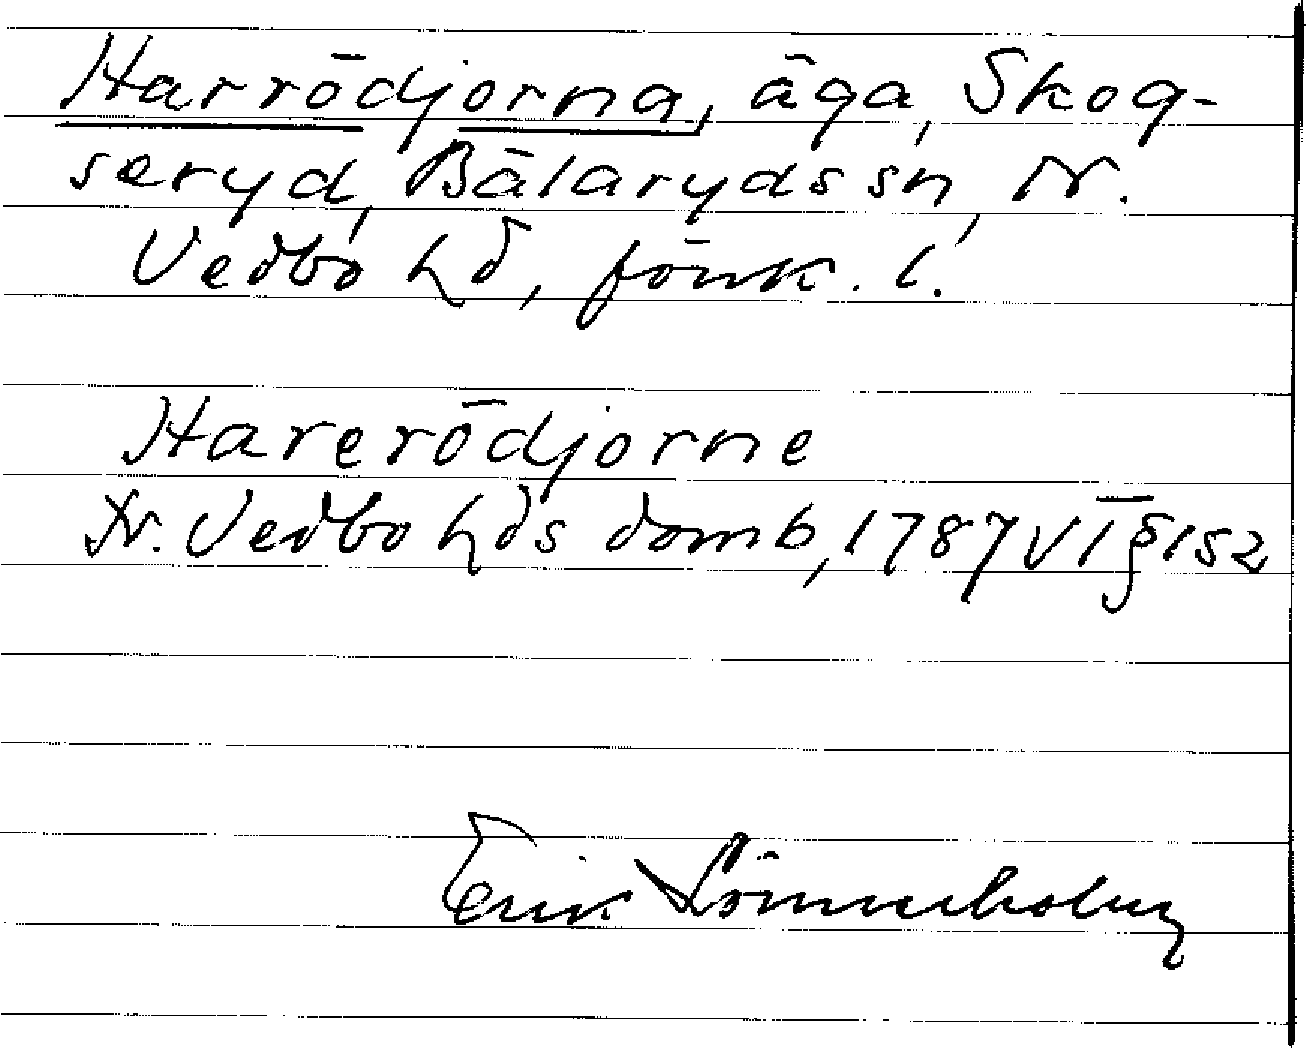 Harrödjorna, äga, Skog-
seryd, Bälaryds sn, N.
Vedbo hd, Jönk. l.
Harerödjorne
N. Vedbo hds domb, 1787 VI § 152
Erik